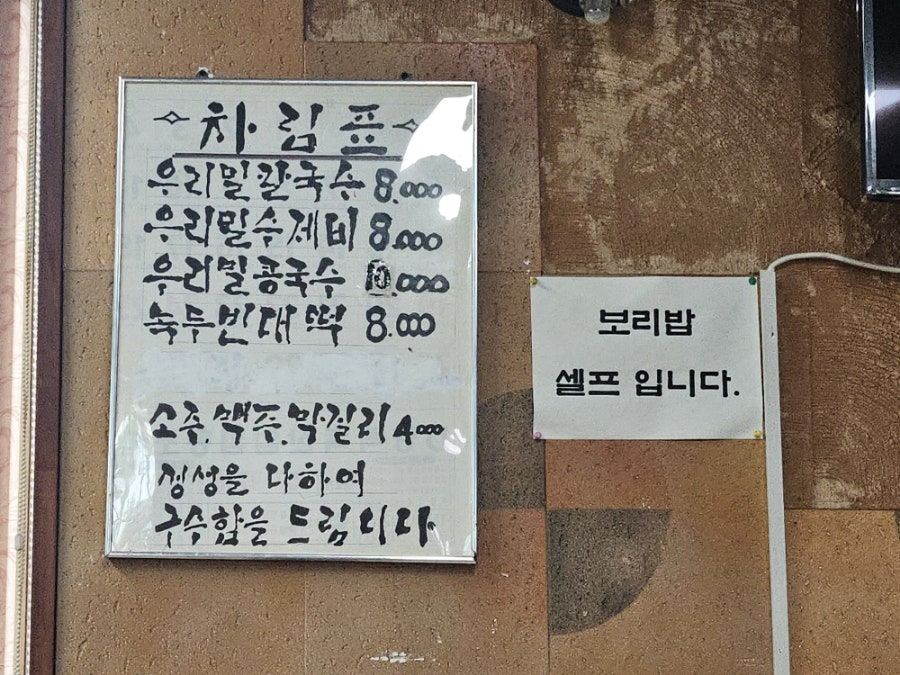 차림표
우리밀칼국수 8.000
우리밀수제비 8.000
우리밀콩국수 10.000
녹두빈대떡 8.000
소주.맥주.막걸리 4000
정성을 다하여
구수함을 드립니다
보리밥
셀프 입니다.